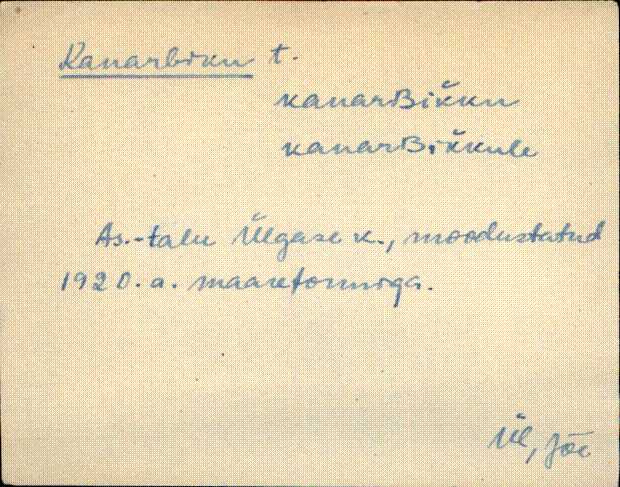 Kanarbiku t.
kanarʙik̆ku
kanarʙik̆kule
As.-talu Ülgase k., moodustatud
1920. a. maareformiga.
Ül, Jõe